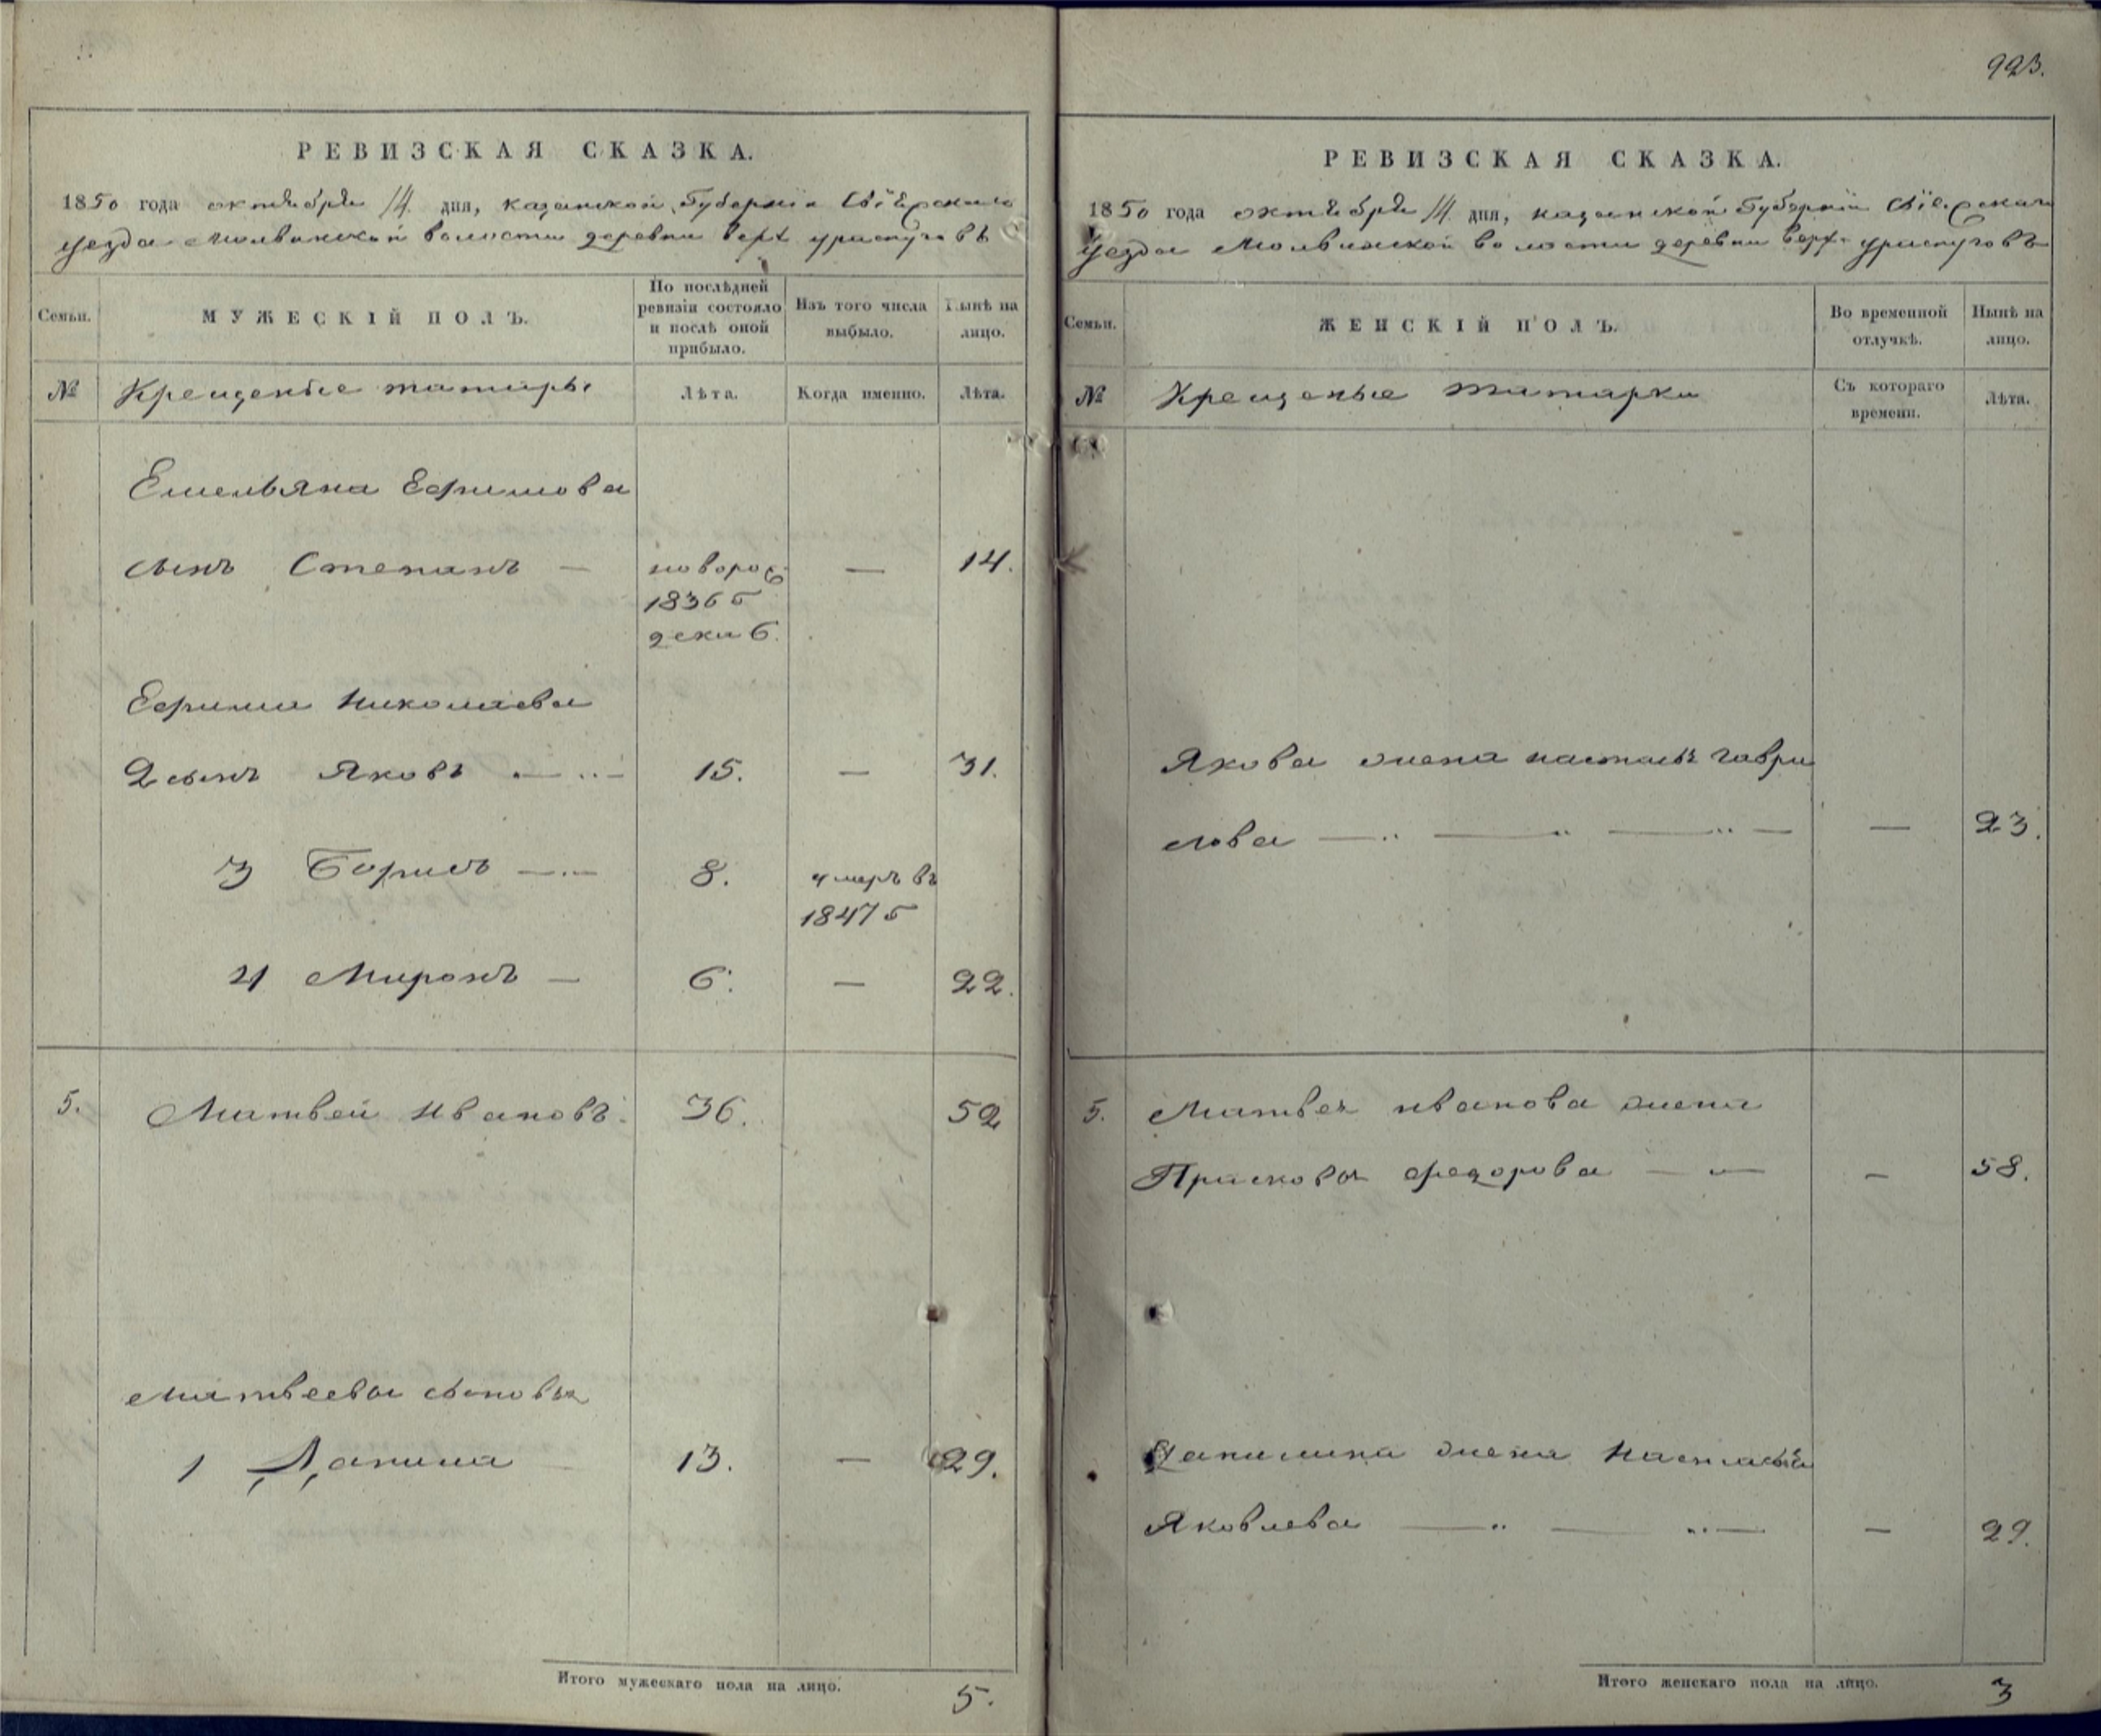 РЕВИЗСКАЯ СКАЗКА.
1850 года октября 14 дня, казанской Губернiи Свiяжскаго
уезда Молвинской волости деревни верх ураспуговъ
Семьи.
МУЖЕСКIЙ ПОЛЪ.
По послѣдней ревизiи состояло и послѣ оной прибыло.
Изъ того числа выбыло.
Нынѣ на лицо.
№ Крещеные татары Лѣта. Когда именно. Лѣта.
Емельяна Ефимова
сынъ Степанъ — новорож — 14.
1836 г
декаб.
Ефима Николаева
2 сынъ Яковъ 15. — 31.
3 Борисъ 8. умеръ въ
1847 г
4 Миронъ — 6. — 22.
5. Матвей Ивановъ. 36. 52
Матвеевы сыновья
1 Данила 13. — 29.
Итого мужескаго пола на лицо. 5.
923.
РЕВИЗСКАЯ СКАЗКА.
1850 года октября 14 дня, казанской Губернiи
уезда Молвинской волости деревни верх ураспуговъ
Семьи.
ЖЕНСКIЙ ПОЛЪ.
Во временной отлучкѣ.
Нынѣ на лицо.
№ Крещеные татарки Съ котораго времени. Лѣта.
Якова жена настасья гаври
лова — 23.
5. Матвея иванова жена
Прасковья федорова — 58.
Данилина жена Настасья
Яковлева — 29.
Итого женскаго пола на лицо. 3